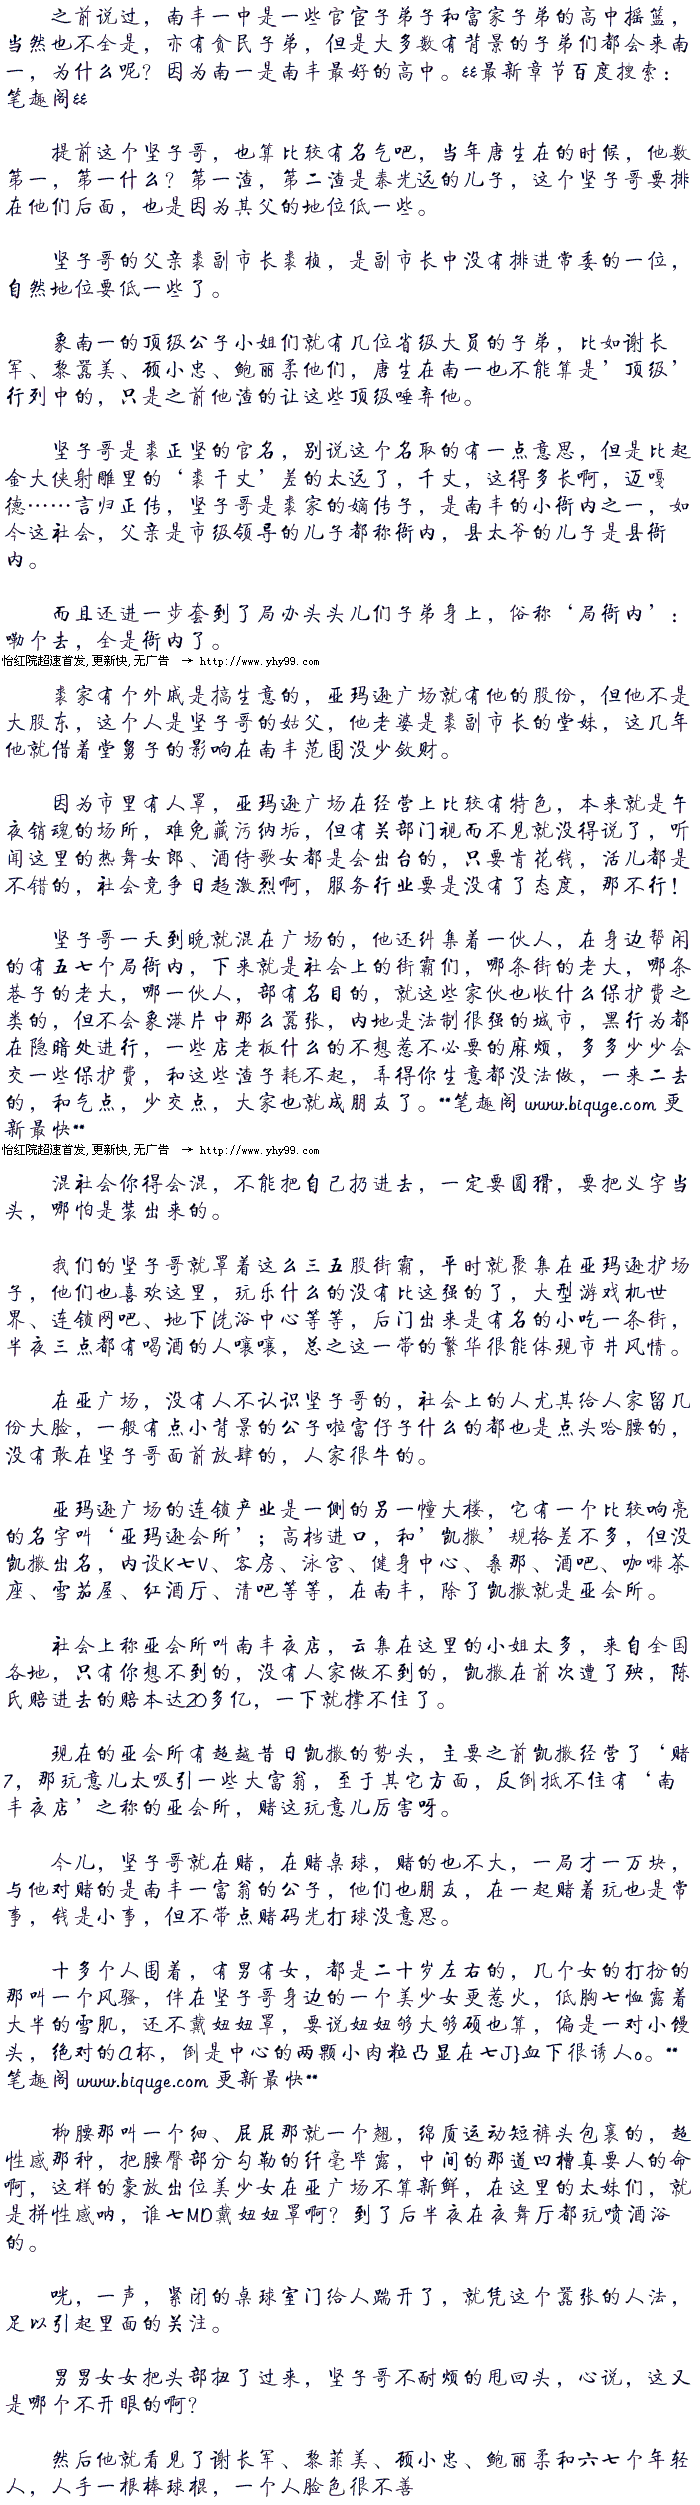 之前说过，南丰一中是一些官宦子弟子和富家子弟的高中摇篮，
当然也不全是，亦有贪民子弟，但是大多数有背景的子弟们都会来南
一，为什么呢？因为南一是南丰最好的高中。££最新章节百度搜索：
笔趣阁££
提前这个坚子哥，也算比较有名气吧，当年唐生在的时候，他数
第一，第一什么？第一渣，第二渣是秦光远的儿子，这个坚子哥要排
在他们后面，也是因为其父的地位低一些。
坚子哥的父亲裘副市长裘桢，是副市长中没有排进常委的一位，
自然地位要低一些了。
象南一的顶级公子小姐们就有几位省级大员的子弟，比如谢长
军、黎嚣美、顾小忠、鲍丽柔他们，唐生在南一也不能算是'顶级'
行列中的，只是之前他渣的让这些顶级唾弃他。
坚子哥是裘正坚的官名，别说这个名取的有一点意思，但是比起
金大侠射雕里的‘裘千丈’差的太远了，千丈，这得多长啊，迈嘎
德……言归正传，坚子哥是裘家的嫡传子，是南丰的小衙内之一，如
今这社会，父亲是市级领导的儿子都称衙内，县太爷的儿子是县衙
内。
而且还进一步套到了局办头头儿们子弟身上，俗称‘局衙内’：
嘞个去，全是衙内了。
怡红院超速首发,更新快,无广告 → http://www.yhy99.com
裘家有个外戚是搞生意的，亚玛逊广场就有他的股份，但他不是
大股东，这个人是坚子哥的姑父，他老婆是裘副市长的堂妹，这几年
他就借着堂舅子的影响在南丰范围没少敛财。
因为市里有人罩，亚玛逊广场在经营上比较有特色，本来就是午
夜销魂的场所，难免藏污纳垢，但有关部门视而不见就没得说了，听
闻这里的热舞女郎、酒侍歌女都是会出台的，只要肯花钱，活儿都是
不错的，社会竞争日趋激烈啊，服务行业要是没有了态度，那不行！
坚子哥一天到晚就混在广场的，他还纠集着一伙人，在身边帮闲
的有五七个局衙内，下来就是社会上的街霸们，哪条街的老大，哪条
巷子的老大，哪一伙人，部有名目的，就这些家伙也收什么保护费之
类的，但不会象港片中那么嚣张，内地是法制很强的城市，黑行为都
在隐暗处进行，一些店老板什么的不想惹不必要的麻烦，多多少少会
交一些保护费，和这些渣子耗不起，弄得你生意都没法做，一来二去
的，和气点，少交点，大家也就成朋友了。**笔趣阁 www.biquge.com 更
新最快**
怡红院超速首发,更新快,无广告 → http://www.yhy99.com
混社会你得会混，不能把自己扔进去，一定要圆猾，要把义字当
头，哪怕是装出来的。
我们的坚子哥就罩着这么三五股街霸，平时就聚集在亚玛逊护场
子，他们也喜欢这里，玩乐什么的没有比这强的了，大型游戏机世
界、连锁网吧、地下洗浴中心等等，后门出来是有名的小吃一条街，
半夜三点都有喝酒的人嚷嚷，总之这一带的繁华很能体现市井风情。
在亚广场，没有人不认识坚子哥的，社会上的人尤其给人家留几
份大脸，一般有点小背景的公子啦富仔子什么的都也是点头哈腰的，
没有敢在坚子哥面前放肆的，人家很牛的。
亚玛逊广场的连锁产业是一侧的另一幢大楼，它有一个比较响亮
的名字叫‘亚玛逊会所’；高档进口，和'凯撒'规格差不多，但没
凯撒出名，内设K七V、客房、泳宫、健身中心、桑那、酒吧、咖啡茶
座、雪茄屋、红酒厅、清吧等等，在南丰，除了凯撒就是亚会所。
社会上称亚会所叫南丰夜店，云集在这里的小姐太多，来自全国
各地，只有你想不到的，没有人家做不到的，凯撒在前次遭了殃，陈
氏赔进去的赔本达20多亿，一下就撑不住了。
现在的亚会所有超越昔日凯撒的势头，主要之前凯撒经营了‘赌
7，那玩意儿太吸引一些大富翁，至于其它方面，反倒抵不住有‘南
丰夜店’之称的亚会所，赌这玩意儿厉害呀。
今儿，坚子哥就在赌，在赌桌球，赌的也不大，一局才一万块，
与他对赌的是南丰一富翁的公子，他们也朋友，在一起赌着玩也是常
事，钱是小事，但不带点赌码光打球没意思。
十多个人围着，有男有女，都是二十岁左右的，几个女的打扮的
那叫一个风骚，伴在坚子哥身边的一个美少女更惹火，低胸七恤露着
大半的雪肌，还不戴妞妞罩，要说妞妞够大够硕也算，偏是一对小馒
头，绝对的A杯，倒是中心的两颗小肉粒凸显在七J}血下很诱人o。**
笔趣阁 www.biquge.com 更新最快**
柳腰那叫一个细、屁屁那就一个翘，绵质运动短裤头包裹的，超
性感那种，把腰臀部分勾勒的纤毫毕露，中间的那道凹槽真要人的命
啊，这样的豪放出位美少女在亚广场不算新鲜，在这里的太妹们，就
是拼性感呐，谁七MD戴妞妞罩啊？到了后半夜在夜舞厅都玩喷酒浴
的。
咣，一声，紧闭的桌球室门给人踹开了，就凭这个嚣张的人法，
足以引起里面的关注。
男男女女把头部扭了过来，坚子哥不耐烦的甩回头，心说，这又
是哪个不开眼的啊？
然后他就看见了谢长军、黎菲美、顾小忠、鲍丽柔和六七个年轻
人，人手一根棒球棍，一个人脸色很不善